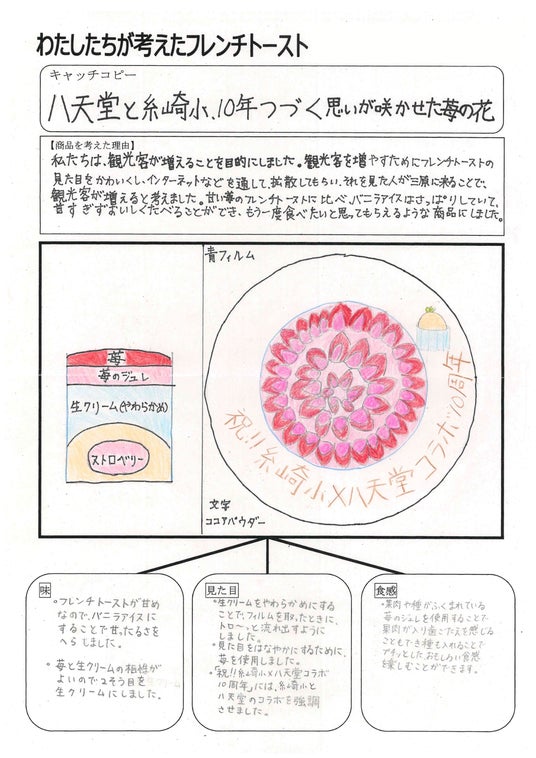 わたしたちが考えたフレンチトースト
キャッチコピー
八天堂と糸崎小、10年つづく思いが咲かせた苺の花
【商品を考えた理由】
私たちは、観光客が増えることを目的にしました。観光客を増やすためにフレンチトーストの
見た目をかわいくし、インターネットなどを通して、拡散してもらい、それを見た人が三原に来ることで、
観光客が増えると考えました。甘い苺のフレンチトーストに比べ、バニラアイスはさっぱりしていて、
甘すぎずおいしくたべることができ、もう一度食べたいと思ってもらえるような商品にしました。
青フィルム
苺
苺のジュレ
生クリーム(やわらかめ)
ストロベリー
祝!!糸崎小×八天堂コラボ10周年
文字
ココアパウダー
味
・フレンチトーストが甘め
なので、バニラアイスに
することで甘ったるさを
へらしました。
・苺と生クリームの相性が
よいので2そう目を
生クリームにしました。
見た目
・生クリームをやわらかめにする
ことで、フィルムを取ったときに、
トロ〜っと流れ出すように
しました。
・見た目をはなやかにするために、
苺を使用しました。
・「祝!!糸崎小×八天堂コラボ
10周年」には、糸崎小と
八天堂のコラボを強調
させました。
食感
・果肉や種がふくまれている
苺のジュレを使用することで
果肉が入り歯ごたえを感じる
こともでき種も入れることで
プチッとしたおもしろい食感
を楽しむことができます。